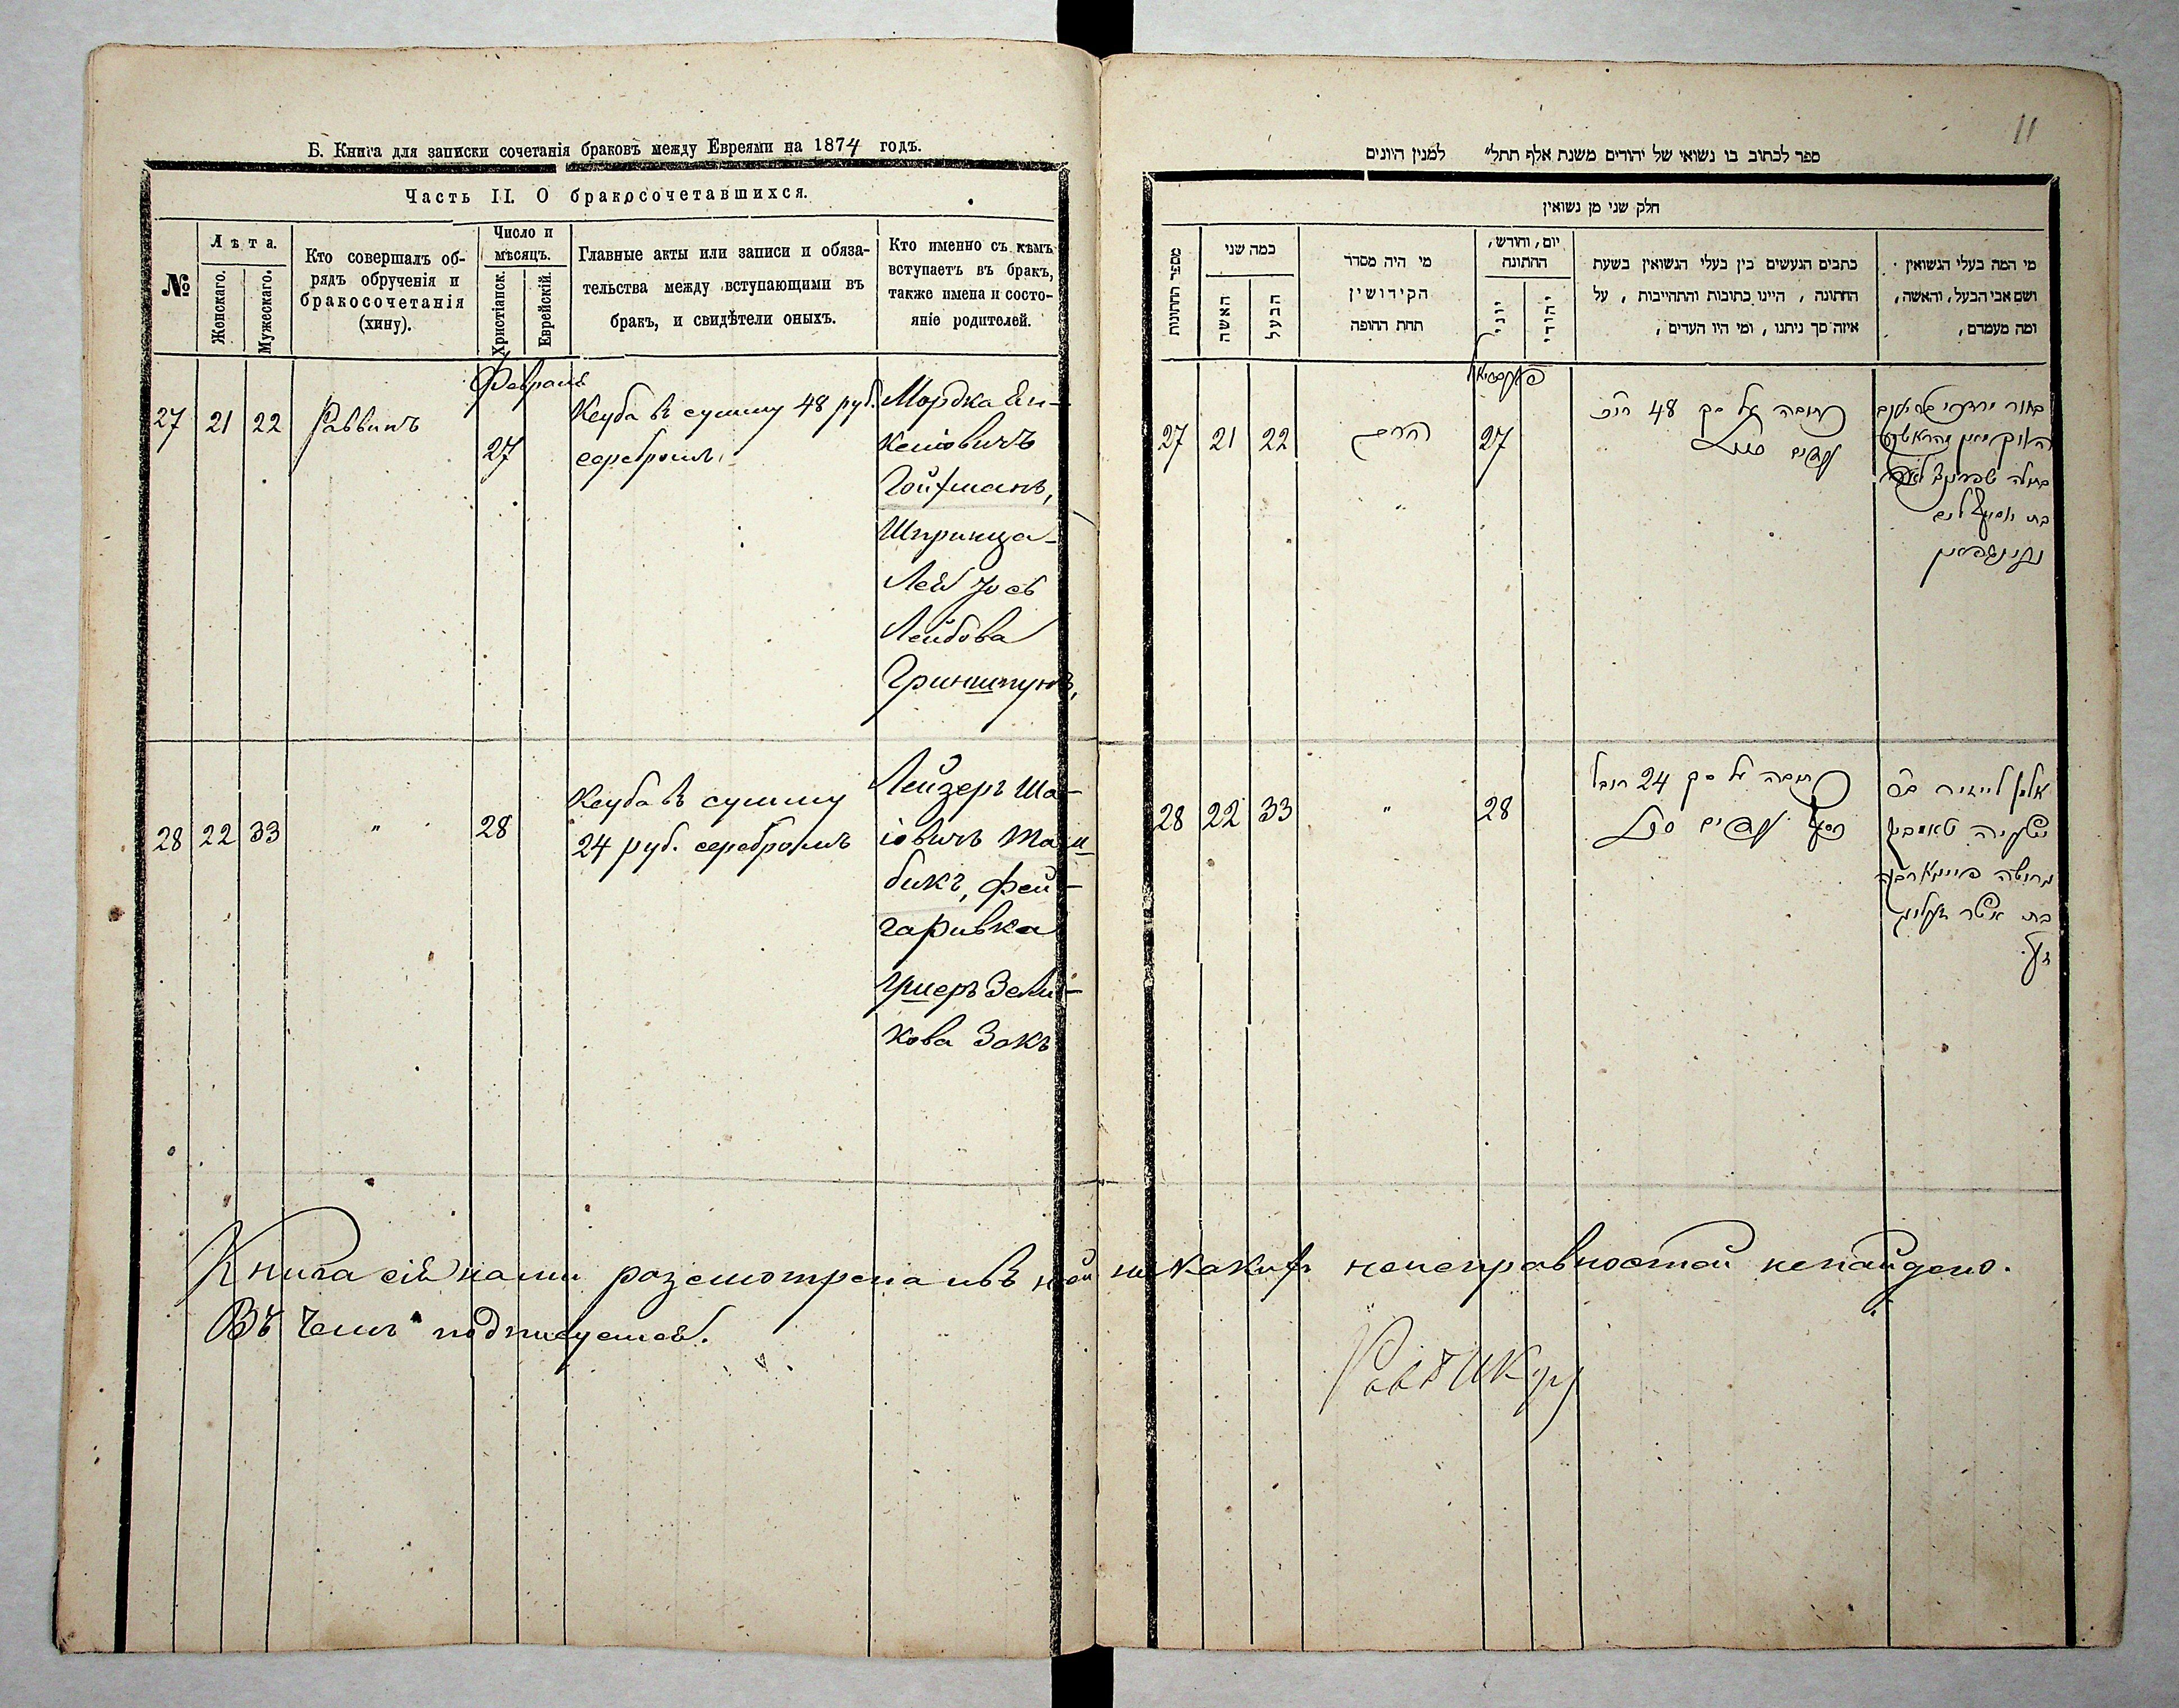 Б. Книга для записки сочетанія браковъ между Евреями на 1874 годъ.
Часть II. О бракосочетавшихся.
№
Лѣта.
Женскаго.
Мужескаго.
Кто совершалъ об-
рядъ обрученія и
бракосочетанія
(хину).
Число и
мѣсяцъ.
Христіанск.
Еврейскій.
Главные акты или записи и обяза-
тельства между вступающими въ
бракъ, и свидѣтели оныхъ.
Кто именно съ кѣмъ
вступаетъ въ бракъ,
также имена и состо-
яніе родителей.
27 21 22 Раввинъ
Февраля
27
Кеуба въ сумму 48 руб.
серебромъ
Мордка Ян-
келіовичъ
Гойхманъ,
Шпринца-
Лея Іось
Лейбова
Гриншпунъ,
28 22 33 " 28
Кеуба въ сумму
24 руб. серебромъ
Лейзеръ Ша-
іовичъ Таш-
бикъ, Фей-
гаривка
Ушеръ Зели-
кова Закъ
Книга сія нами розсмотрена и въ ней никакихъ неисправностей ненайдено.
Въ чемъ подписуемся.
11
ספר לכתוב בו נשואי של יהודים משנת אלף תתל״ למנין היונים
חלק שני מן נשואין
מספר החתונות
כמה שני
האשה
הבעל
מי היה מסדר
הקידושין
תחת החופה
יום, וחודש,
החתונה
יוני
יהודי
כתבים הנעשים בין בעלי הנשואין בשעת
החתונה, היינו כתובות והתחייבות, על
איזה סך ניתנו, ומי היו העדים,
מי המה בעלי הנשואין
ושם אבי הבעל, והאשה,
ומה מעמדם,
27 21 22 הרב 27
כתובה על סך 48
בתולה שפרינצא לאה
28 22 33 " 28
כתובה על סך 24 רובל
אלמן לייזיר
בת אשר זעליג
Раввинъ